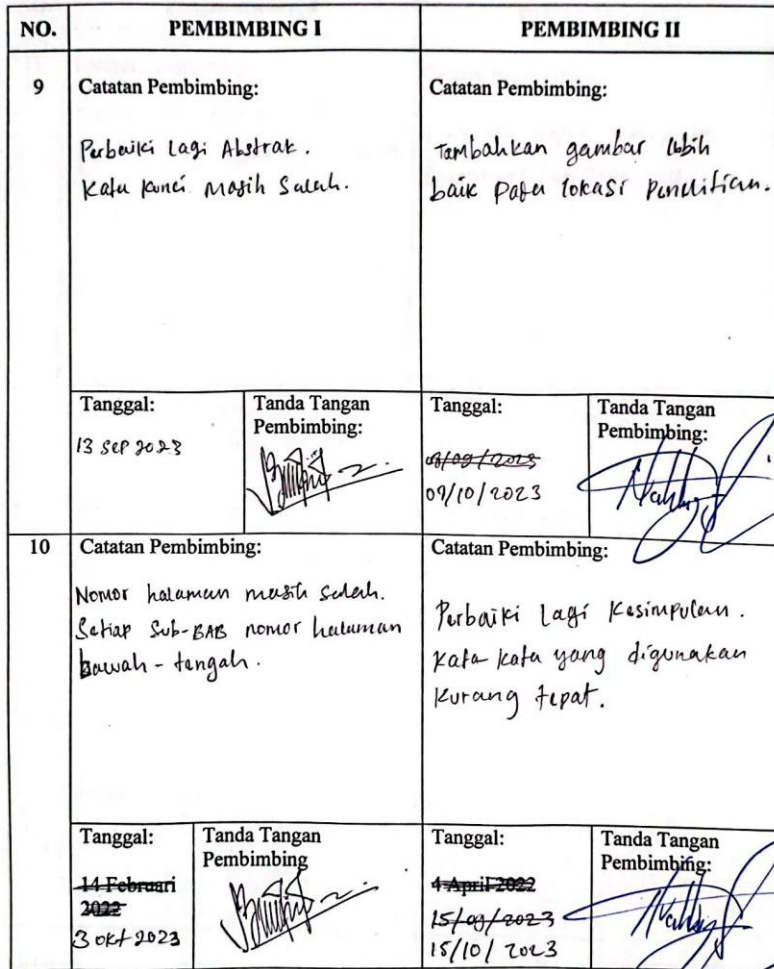 NO. PEMBIMBING I PEMBIMBING II
9 Catatan Pembimbing:
Perbaiki Lagi Abstrak.
Kata kunci Masih Salah.
Catatan Pembimbing:
Tambahkan gambar lebih
baik pada lokasi Penelitian.
Tanggal:
13 SEP 2023
Tanda Tangan
Pembimbing:
Tanggal:
09/10/2023
Tanda Tangan
Pembimbing:
10 Catatan Pembimbing:
Nomor halaman masih salah.
Setiap Sub-BAB nomor halaman
bawah - tengah.
Catatan Pembimbing:
Perbaiki Lagi Kesimpulan.
Kata-kata yang digunakan
Kurang tepat.
Tanggal:
14 Februari
2022
3 okt 2023
Tanda Tangan
Pembimbing
Tanggal:
4 April 2022
15/09/2023
15/10/2023
Tanda Tangan
Pembimbing: